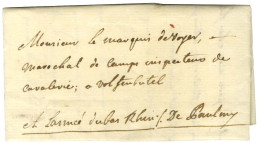 Monsieur le marquis de voyer,
marechal de camps inspecteur de
cavalerie, a volfenbutel
A L'armée du bas Rhin /. De